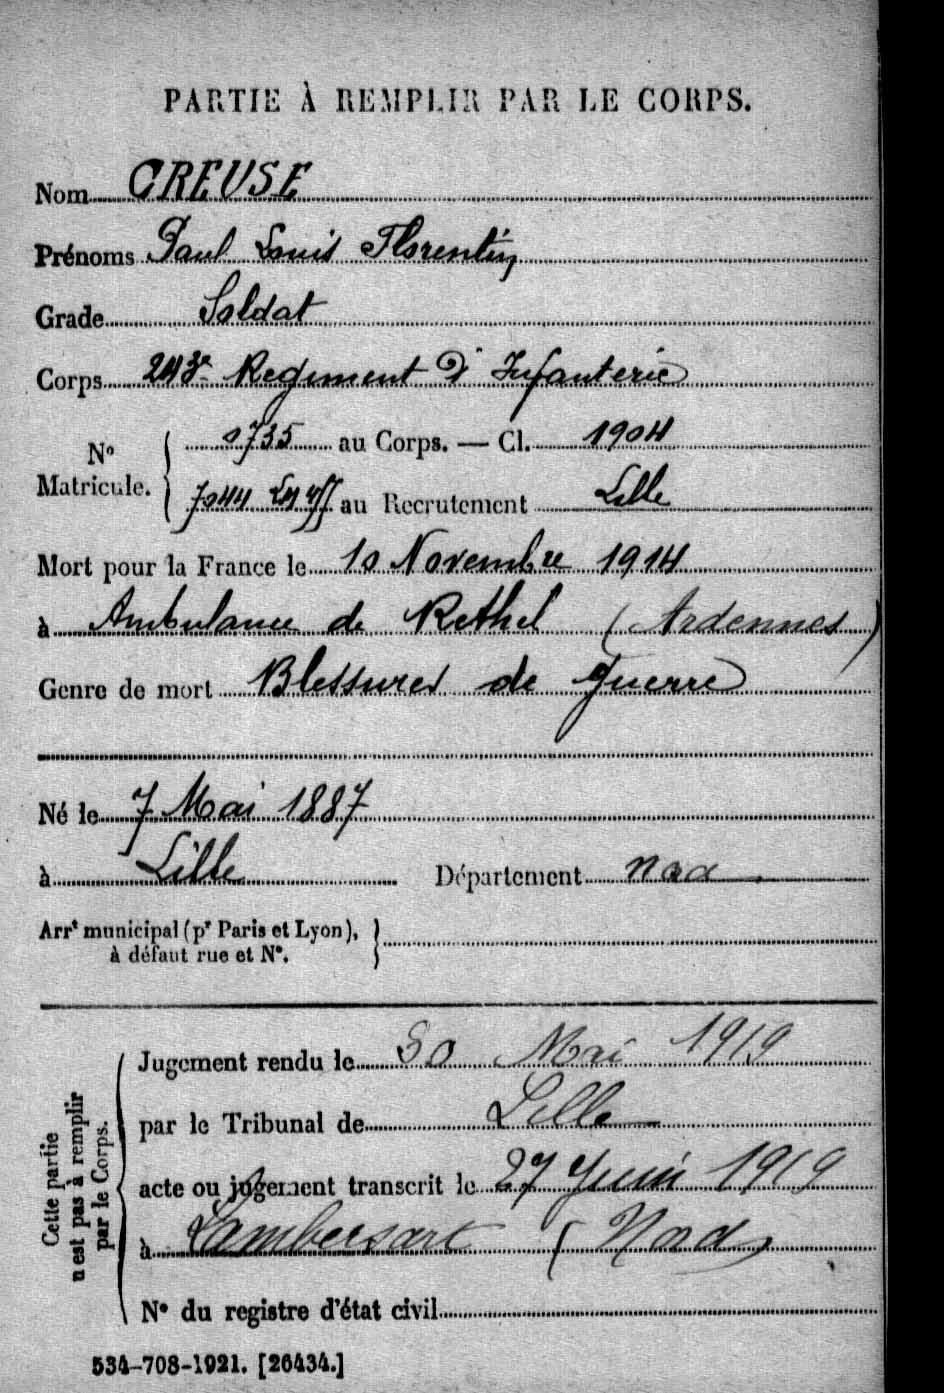 PARTIE À REMPLIR PAR LE CORPS.
Nom CREUSE
Prénoms Paul Louis Florentin
Grade Soldat
Corps 243e Regiment d'Infanterie
No Matricule. { 0735 au Corps. — Cl. 1904
au Recrutement Lille
Mort pour la France le 10 Novembre 1914
à Ambulance de Rethel (Ardennes)
Genre de mort Blessures de guerre
Né le 7 Mai 1887
à Lille Département Nord
Arrt municipal (pr Paris et Lyon), à défaut rue et No. }
Cette partie n'est pas à remplir par le Corps.
Jugement rendu le 30 Mai 1919
par le Tribunal de Lille
acte ou jugement transcrit le 27 Juin 1919
à Lambersart (Nord)
No du registre d'état civil
534-708-1921. [26434.]